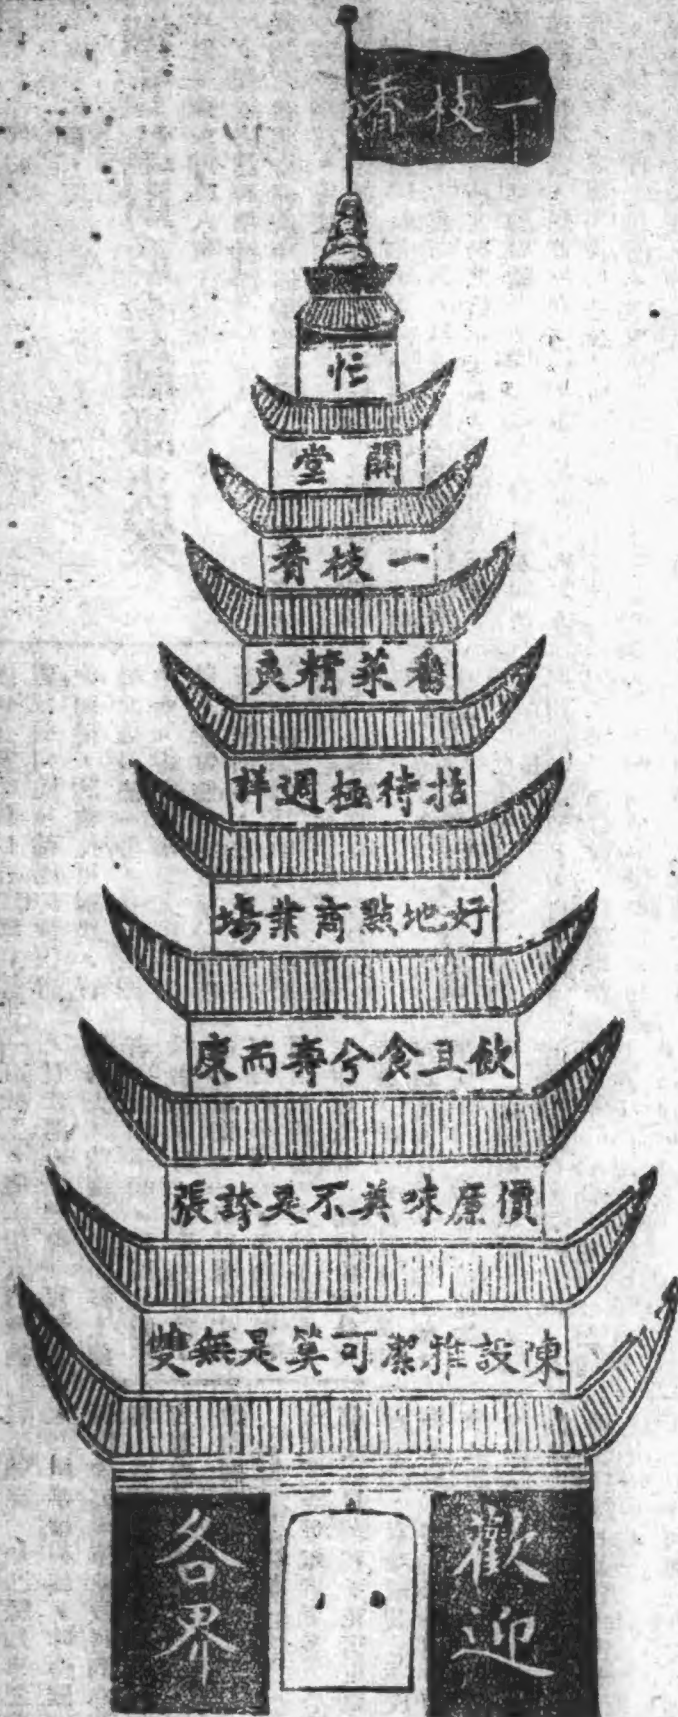 一枝香
忙
開堂
一枝香
番菜精爽
招待極週詳
好地點商業場
飲且食兮壽而康
價廉味美不是誇張
陳設雅潔可算是無雙
歡迎
各界